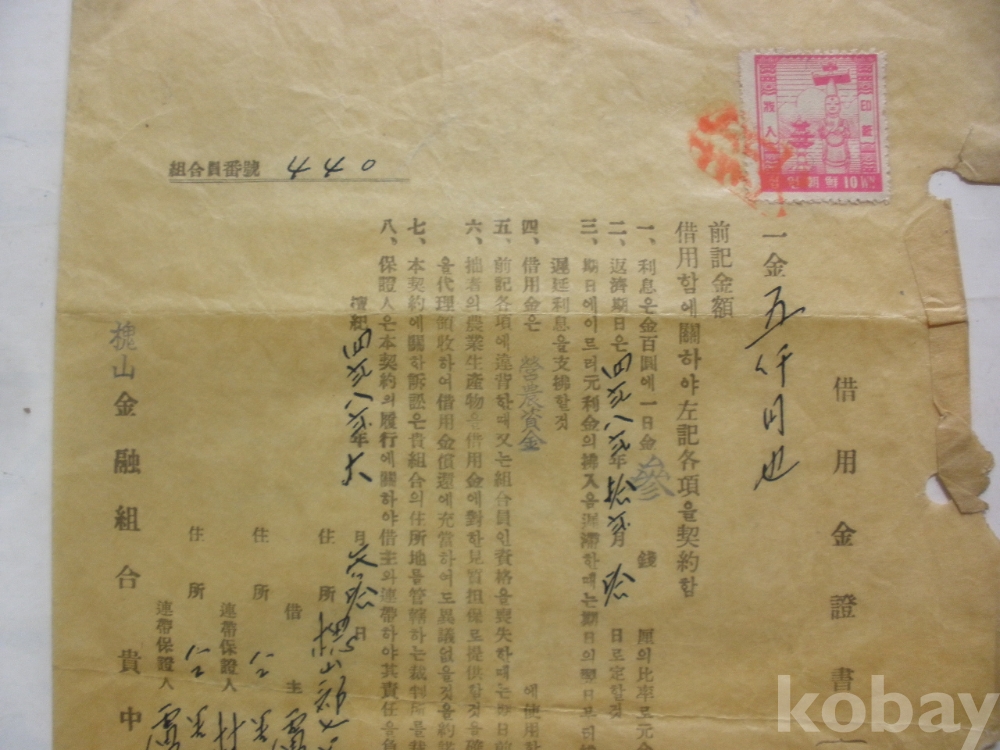 借用金證書
一金 五仟円也
前記金額
借用함에關하야左記各項을契約함
一、利息은金百圓에一日金 參 錢 厘의比率로元金
二、返濟期日은 四貳八貳年 拾貳月 拾 日로定할것
三、期日에이르러元利金의拂入을遲滯한때는期日의翌日브터拂
遲延利息을支拂할것
四、借用金은 營農資金 에使用할
五、前記各項에違背한때又는組合員인資格을喪失한때는期日前
六、拙者의農業生產物을借用金에對한見質担保로提供할것을確
을代理領收하여借用金償還에充當하여도異議없을것을約諾
七、本契約에關한訴訟은貴組合의住所地를管轄하는裁判所를
八、保證人은本契約의履行에關하야借主와連帶하야其責任을負
檀紀四貳八貳年 六 月 日
住所 槐山郡
借主
住所
連帶保證人
住所
連帶保證人
槐山金融組合貴中
組合員番號 440
印紙
10
kobay